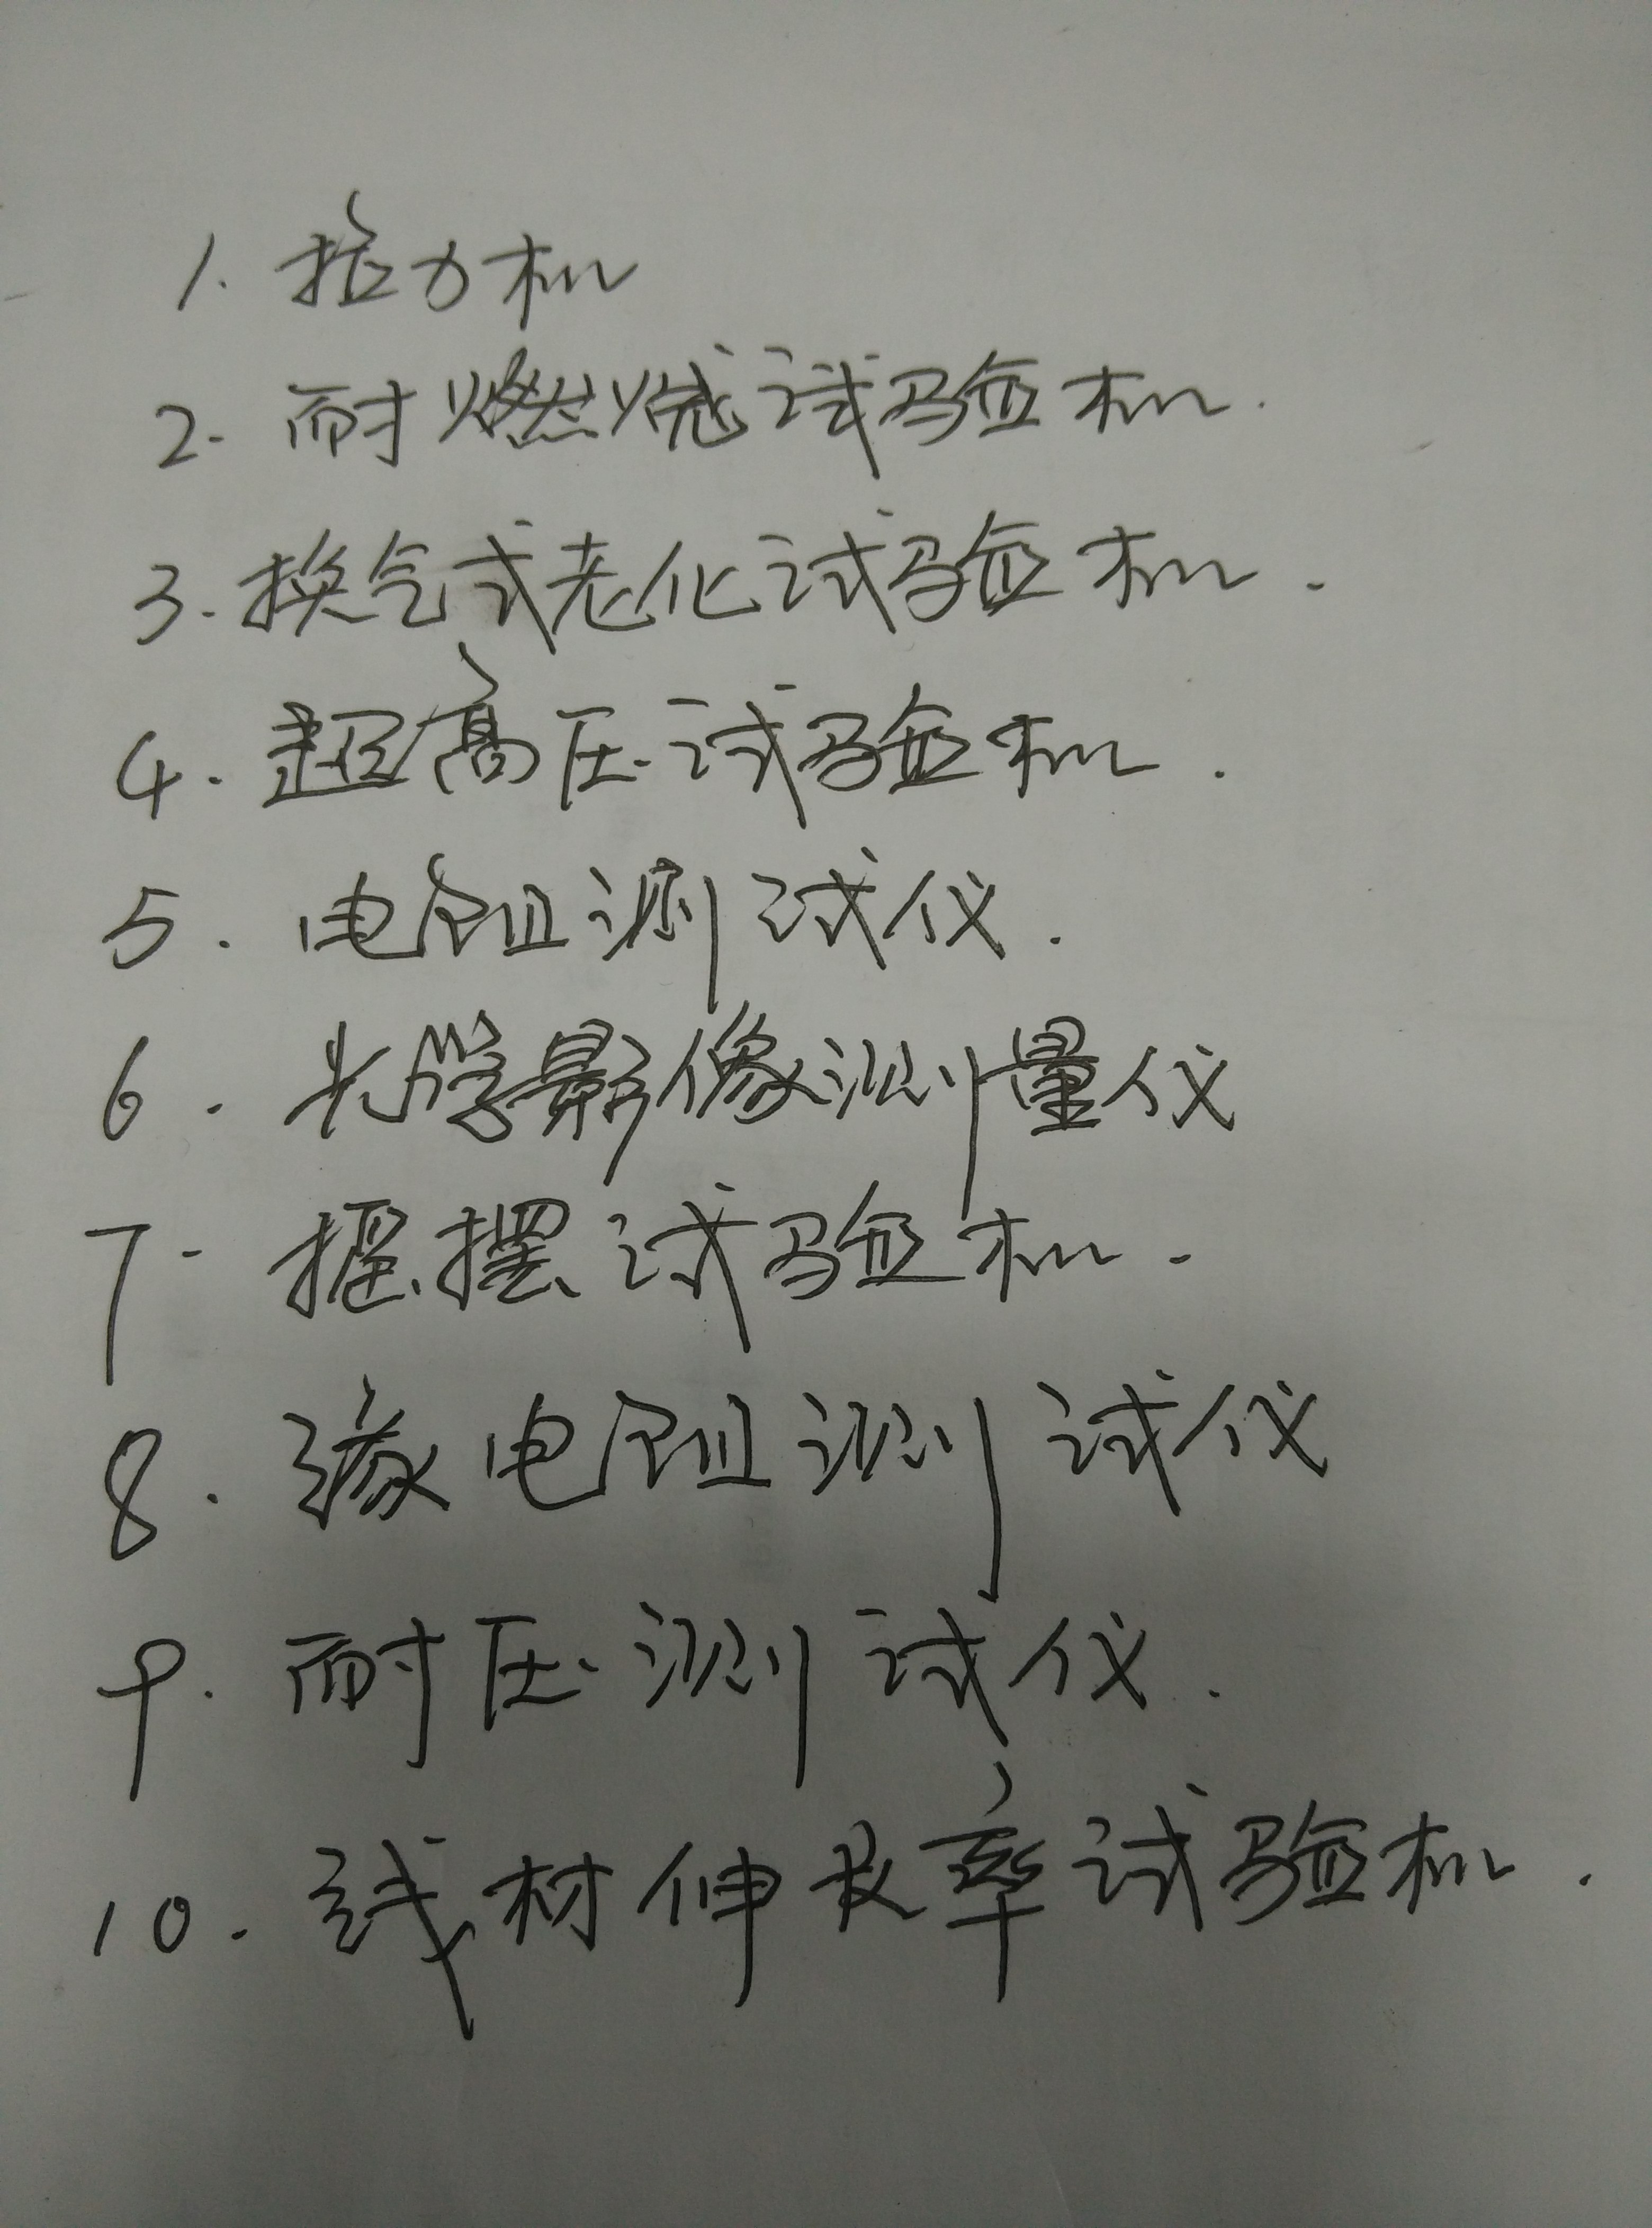 1. 拉力机
2. 耐燃烧试验机.
3. 换气式老化试验机.
4. 超高压试验机.
5. 电阻测试仪.
6. 光学影像测量仪
7. 摇摆试验机.
8. 缘电阻测试仪
9. 耐压测试仪.
10. 线材伸收率试验机.